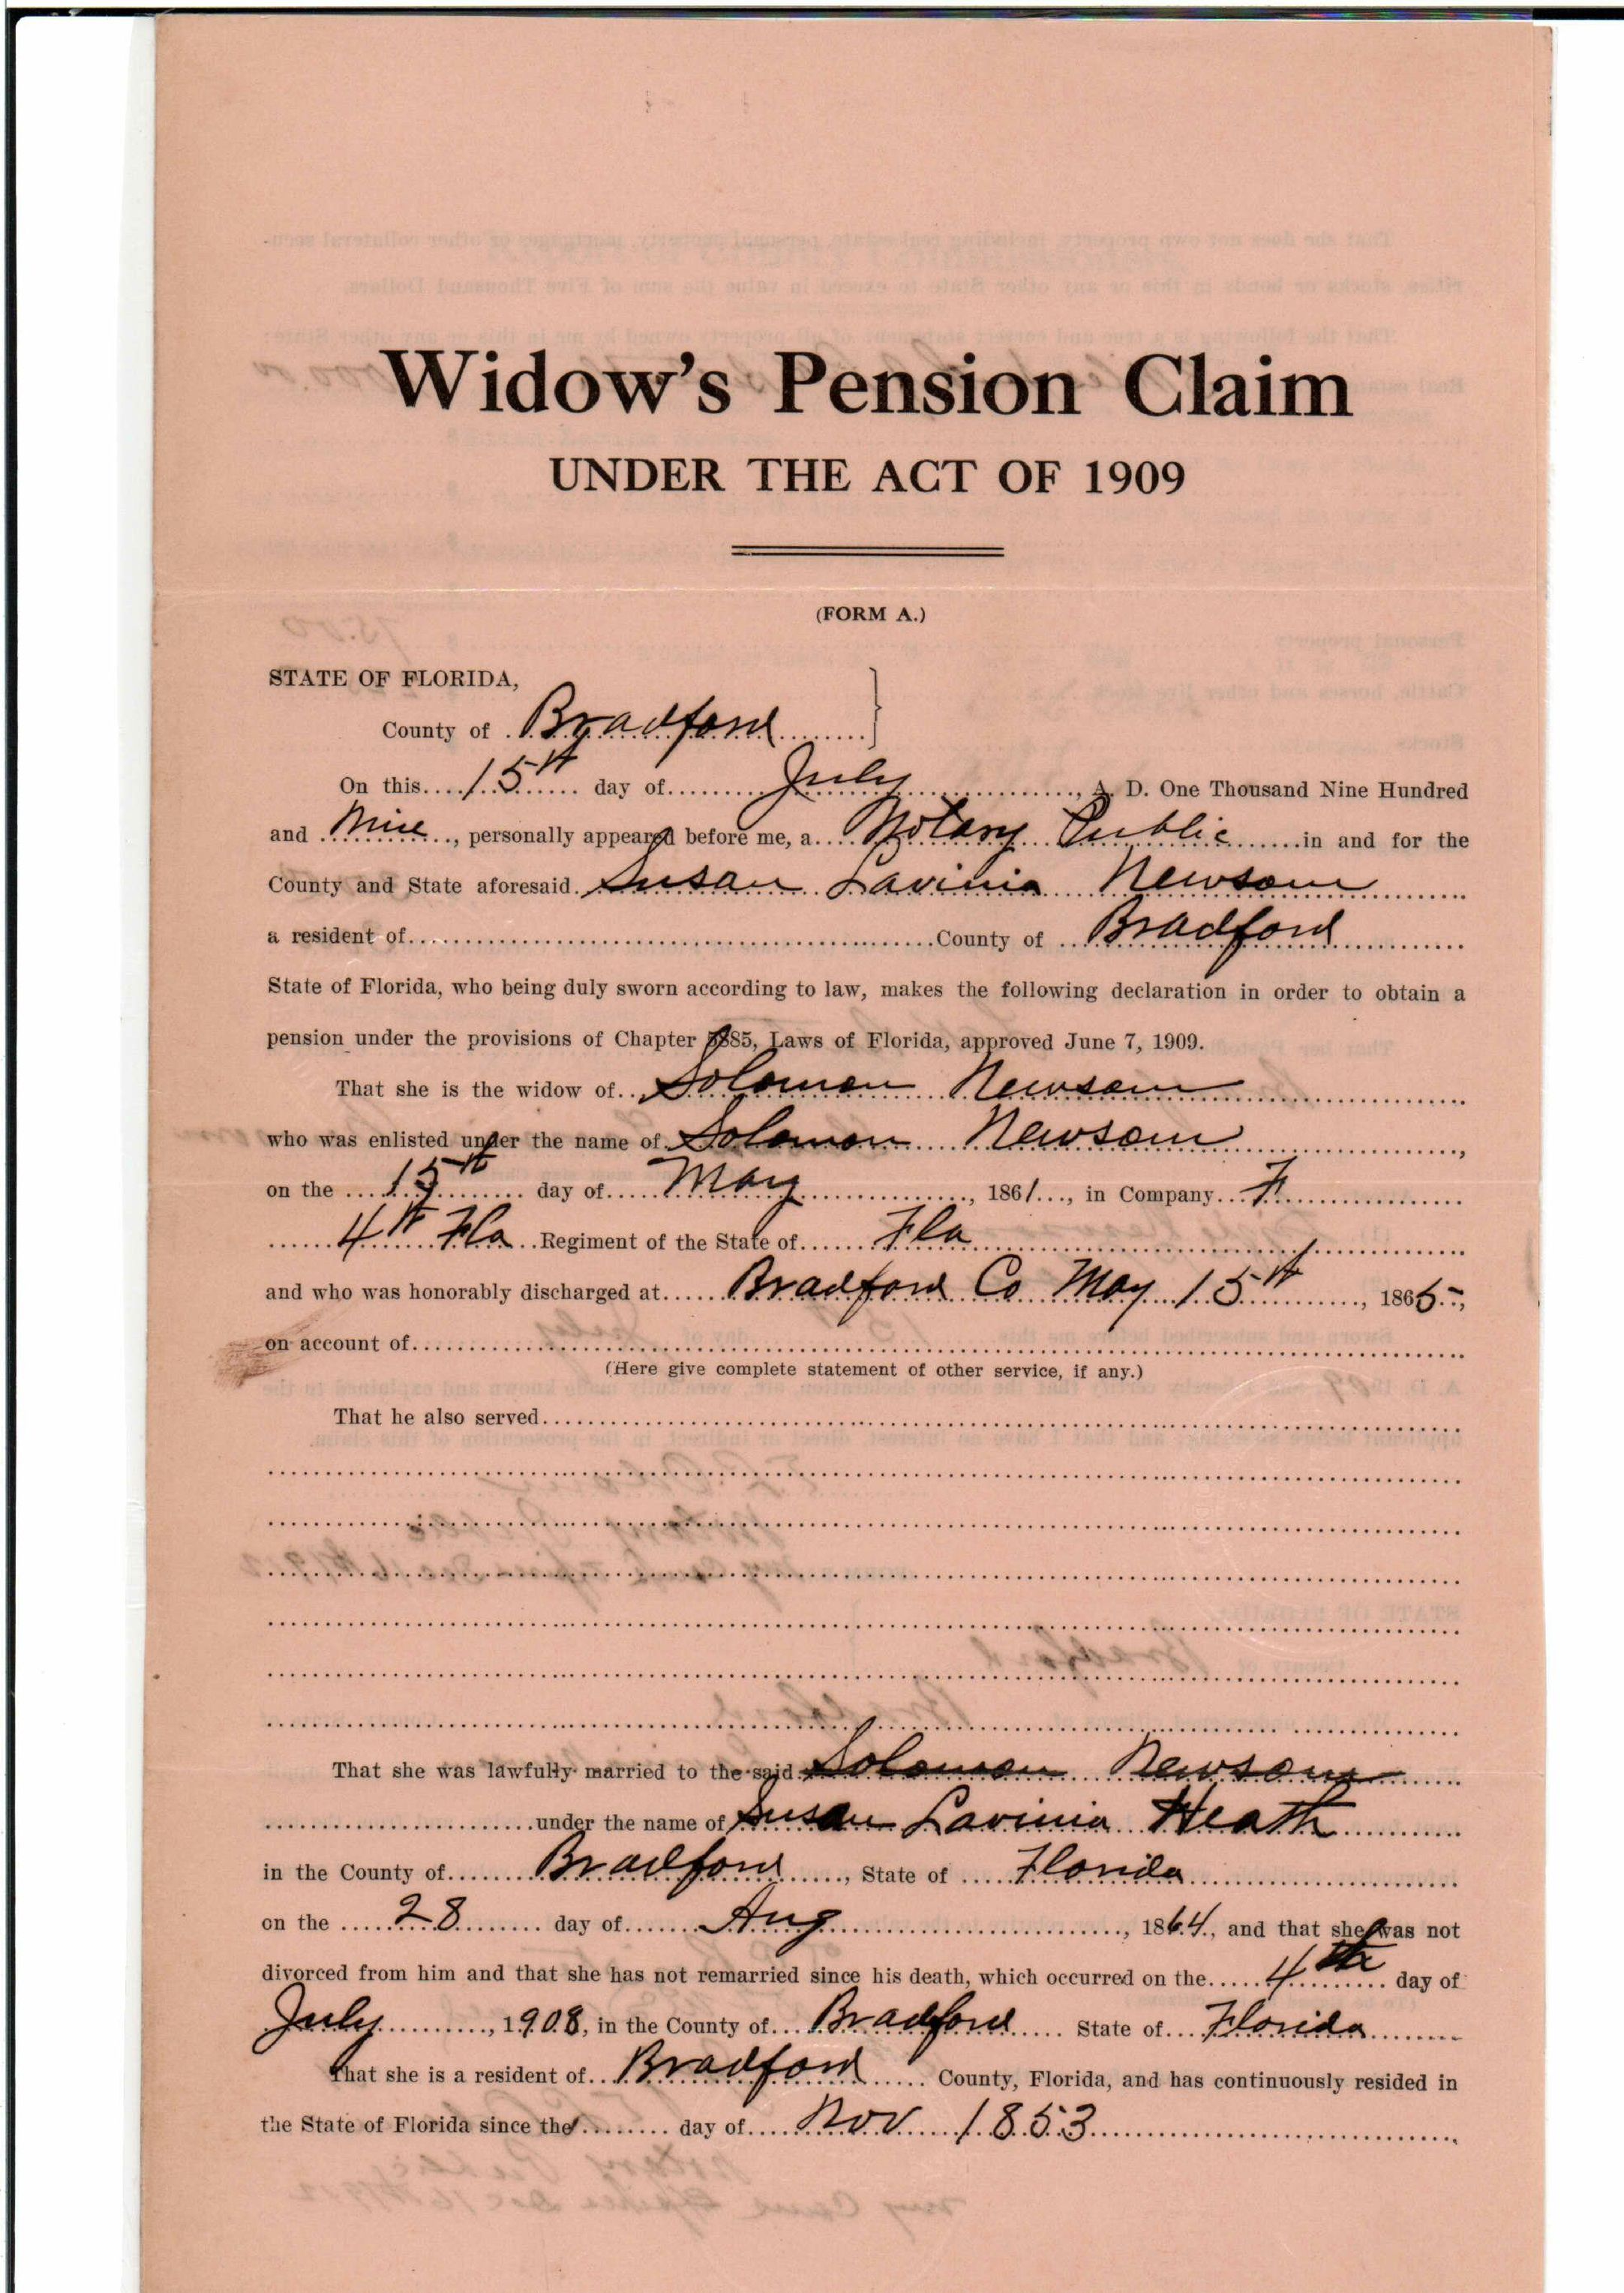 Widow's Pension Claim
UNDER THE ACT OF 1909
(FORM A.)
STATE OF FLORIDA,
County of Bradford
On this 15th day of July, A. D. One Thousand Nine Hundred
and Nine, personally appeared before me, a Notary Public in and for the
County and State aforesaid Susan Lavinia Newsom
a resident of County of Bradford
State of Florida, who being duly sworn according to law, makes the following declaration in order to obtain a
pension under the provisions of Chapter 5885, Laws of Florida, approved June 7, 1909.
That she is the widow of Solomon Newsom
who was enlisted under the name of Solomon Newsom,
on the 15th day of May, 1861, in Company F
4th Fla Regiment of the State of Fla
and who was honorably discharged at Bradford Co May 15th, 1865,
on account of
(Here give complete statement of other service, if any.)
That he also served
That she was lawfully married to the said Solomon Newsom
under the name of Susan Lavinia Heath
in the County of Bradford, State of Florida
on the 28 day of Aug, 1864, and that she was not
divorced from him and that she has not remarried since his death, which occurred on the 4th day of
July, 1908, in the County of Bradford State of Florida
That she is a resident of Bradford County, Florida, and has continuously resided in
the State of Florida since the day of Nov 1853